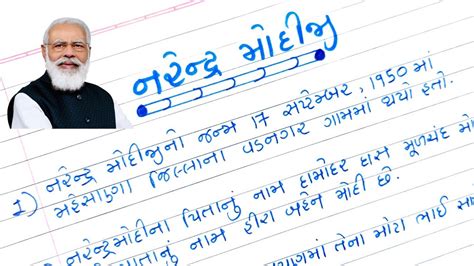 નરેન્દ્ર મોદીજી
1) નરેન્દ્ર મોદીજીનો જન્મ 17 સપ્ટેમ્બર, 1950 માં
મહેસાણા જિલ્લાના વડનગર ગામમાં થયો હતો.
નરેન્દ્રમોદીના પિતાનું નામ દામોદર દાસ મૂળચંદ મો
નામ હીરા બહેન મોદી છે.
તેના મોટા ભાઈ